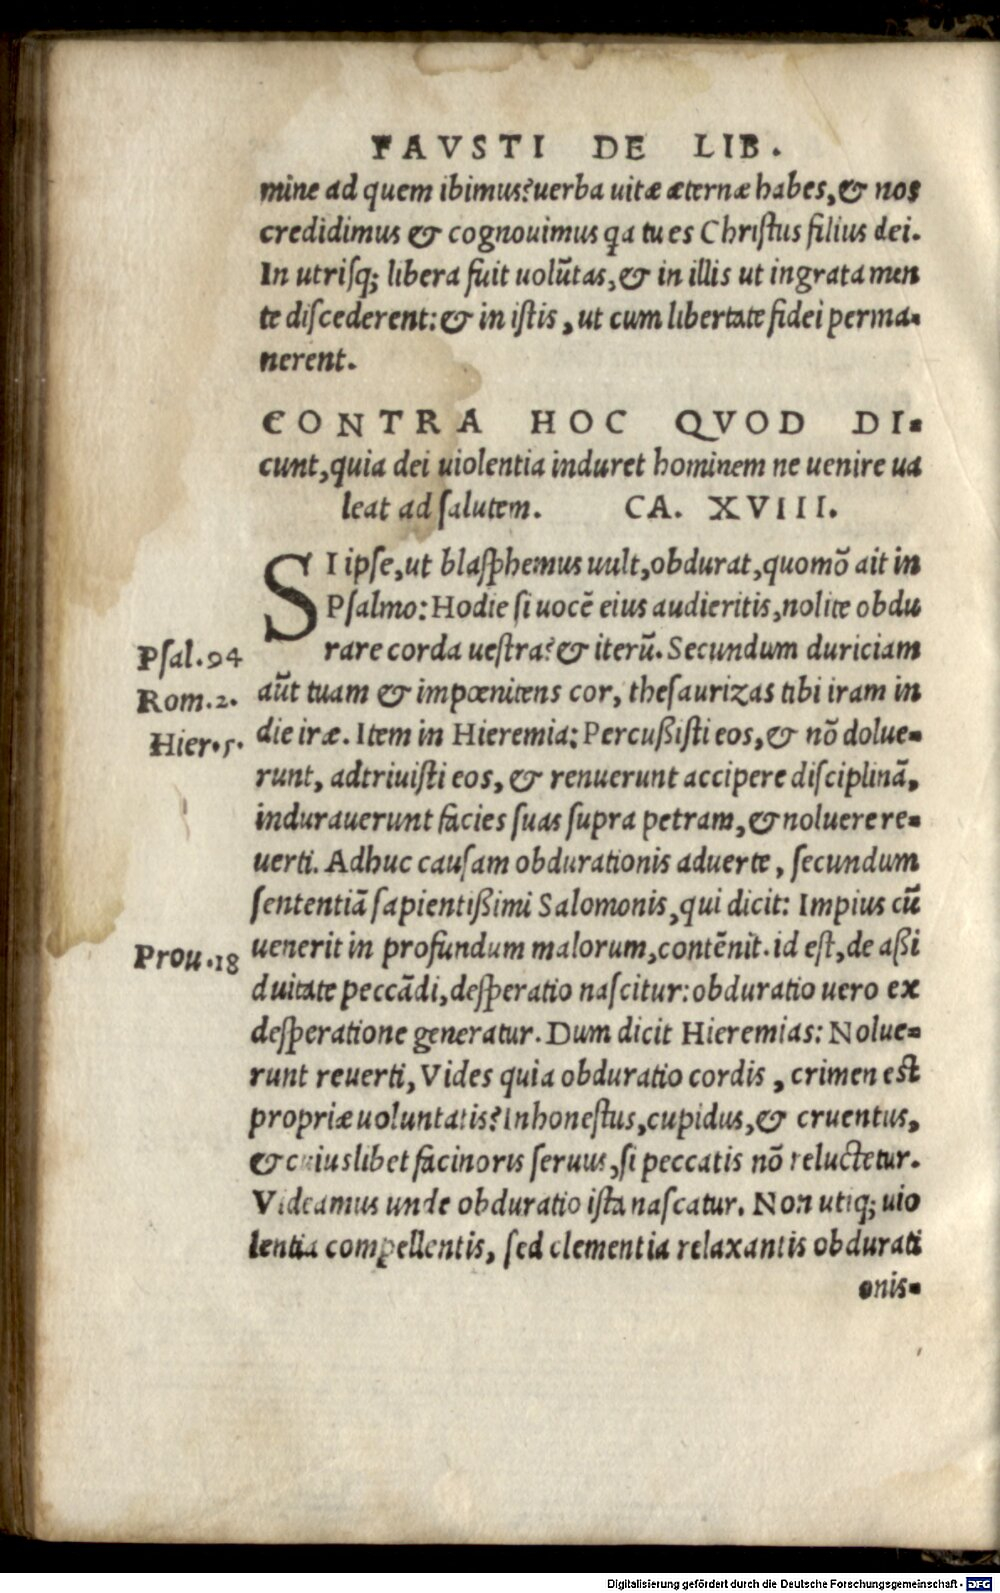 FAVSTI DE LIB.
mine ad quem ibimus? uerba uitæ æternæ habes, & nos
credidimus & cognouimus qa tu es Chriſtus filius dei.
In utriſq; libera fuit uolūtas, & in illis ut ingrata men
te diſcederent: & in iſtis, ut cum libertate fidei perma-
nerent.
CONTRA HOC QVOD DI-
cunt, quia dei uiolentia induret hominem ne uenire ua
leat ad ſalutem. CA. XVIII.
SI ipſe, ut blaſphemus uult, obdurat, quomō ait in
Pſalmo: Hodie ſi uocē eius audieritis, nolite obdu
rare corda ueſtra? & iterū. Secundum duriciam
Pſal. 94
aūt tuam & impœnitens cor, theſaurizas tibi iram in
Rom. 2.
die iræ. Item in Hieremia: Percußiſti eos, & nō dolue-
Hier. 5.
runt, adtriuiſti eos, & renuerunt accipere diſciplinā,
indurauerunt facies ſuas ſupra petram, & noluere re-
uerti. Adhuc cauſam obdurationis aduerte, ſecundum
ſententiā ſapientißimi Salomonis, qui dicit: Impius cū
uenerit in profundum malorum, contēnit. id eſt, de aßi
Prou. 18
duitate peccādi, deſperatio naſcitur: obduratio uero ex
deſperatione generatur. Dum dicit Hieremias: Nolue-
runt reuerti, Vides quia obduratio cordis, crimen eſt
propriæ uoluntatis? Inhoneſtus, cupidus, & cruentus,
& cuiuslibet facinoris ſeruus, ſi peccatis nō reluctetur.
Videamus unde obduratio iſta naſcatur. Non utiq; uio
lentia compellentis, ſed clementia relaxantis obdurati
onis-
Digitalisierung gefördert durch die Deutsche Forschungsgemeinschaft - DFG